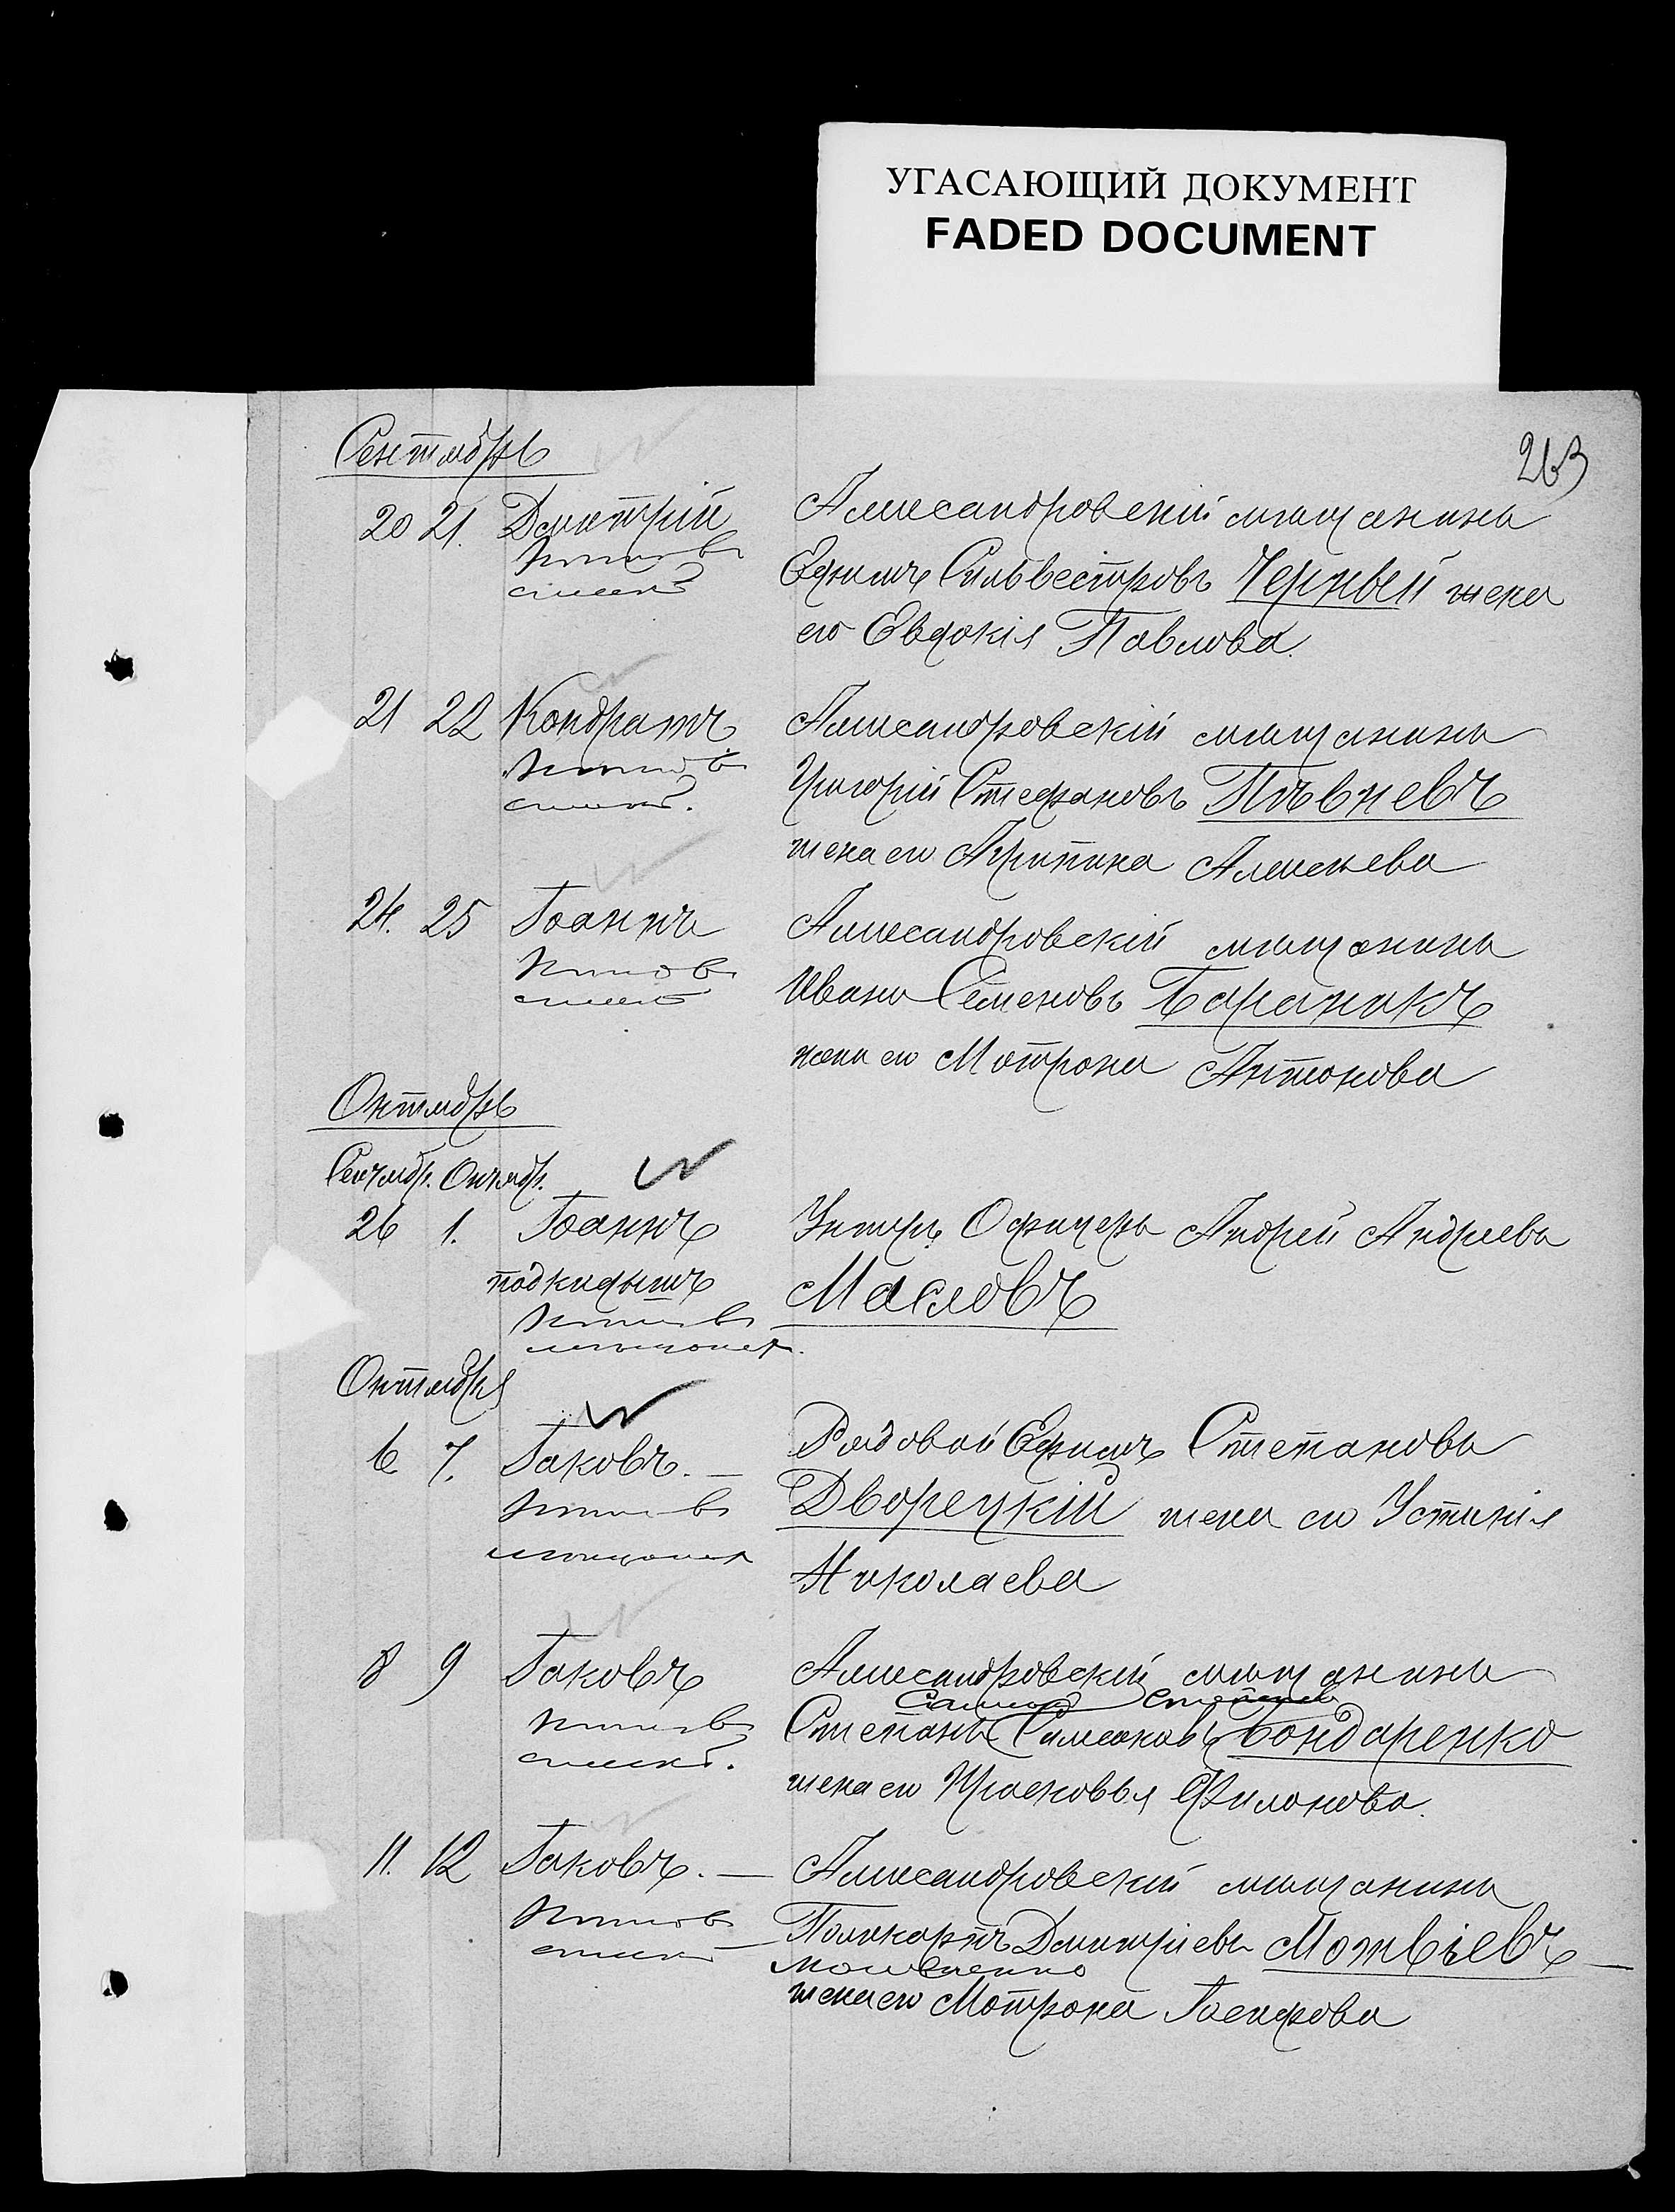 УГАСАЮЩИЙ ДОКУМЕНТ
FADED DOCUMENT
263
Сентябрь
20 21. Дмитрій Александровскій мѣщанинъ
Ефимъ Сильвестровъ Черный жена
его Евдокія Павлова.
21 22 Кондратъ Александровскій мѣщанинъ
Григорій Стефановъ Пѣвневъ
жена его Агрипина Алексѣева
24. 25 Іоаннъ Александровскій мѣщанинъ
Иванъ Семеновъ Бараникъ
жена его Мотрона Антонова
Октябрь
Сентябр. Октябр.
26 1. Іоаннъ Унтеръ Офицеръ Андрей Андреевъ
подкидышъ Масловъ
Октября
6 7. Іаковъ. — Рядовой Ефимъ Степановъ
Дворецкій жена его Устинія
Николаева
8 9 Іаковъ Александровскій мѣщанинъ
Степанъ Симеоновъ Бондаренко
жена его Прасковья Филонова.
11. 12 Іаковъ. — Александровскій мѣщанинъ
Поликарпъ Дмитріевъ Матвіевъ —
жена его Мотрона Іосифова